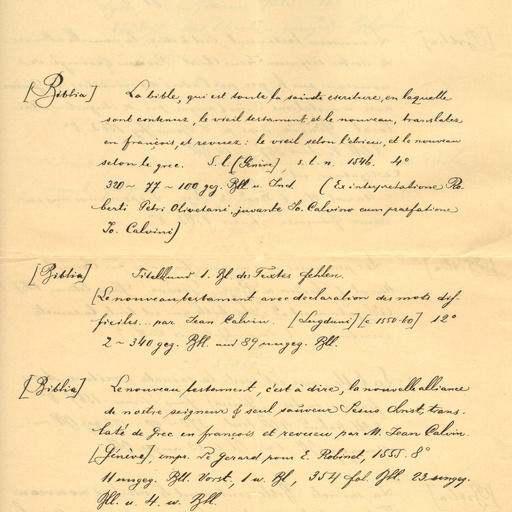 [Biblia] La bible, qui est toute la saincte escriture, en laquelle
sont contenuz, le vieil testament et le nouveau, translatez
en françois, et reveuz: le vieil selon l'ebrieu, et le nouveau
selon le grec. S. l. [Genève], s. t. n. 1546. 4°
320 ~ 77 ~ 100 gez. Bll u. Ind (Ex interpretatione Ro-
berti Petri Olivetani, juvante Jo. Calvino cum praefatione
Jo. Calvini]
[Biblia] Titelbl und 1. Bl. des Textes fehlen.
[Le nouveau testament avec declaration des mots dif-
ficiles... par Jean Calvin. [Lugduni] [c 1550-60] 12°
2 ~ 340 gez. Bll. und 89 ungez. Bll.
[Biblia] Le nouveau testament, c'est à dire, la nouvelle alliance
de nostre seigneur & seul sauveur Jesus Christ, trans-
laté de Grec en françois et reveseu par M. Jean Calvin.
[Génève], impr. P. Gerard pour E. Robinet, 1555. 8°
11 ungez. Bll. Vorst, 1 w. Bl, 354 fol. Bll. 23 ungez.
Bll. u. 4. w. Bll.